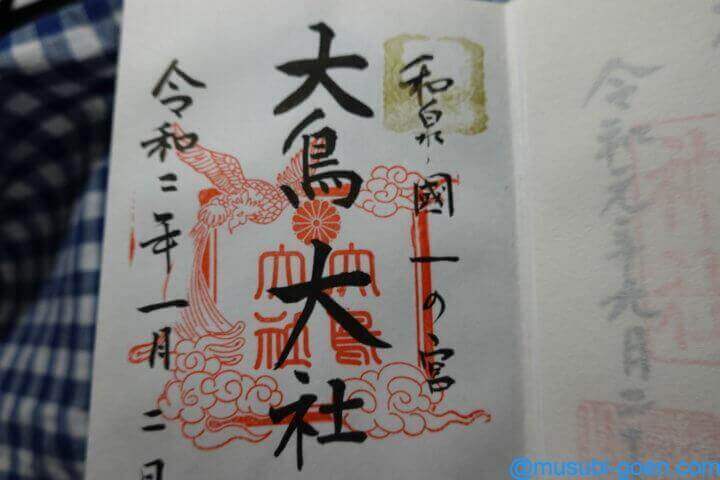 和泉国一の宮
大鳥大社
令和二年一月二日
大鳥大社
@musubi-goen.com